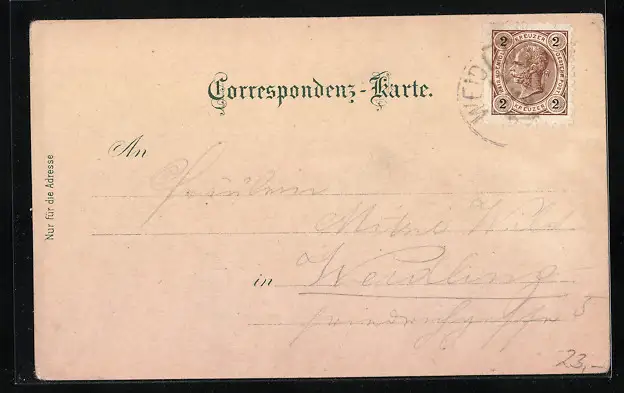 Correspondenz-Karte.
2 KREUZER 2
2 KREUZER 2
WEIDL
An
Fräulein
in Weidling
5
Nur für die Adresse
23,-